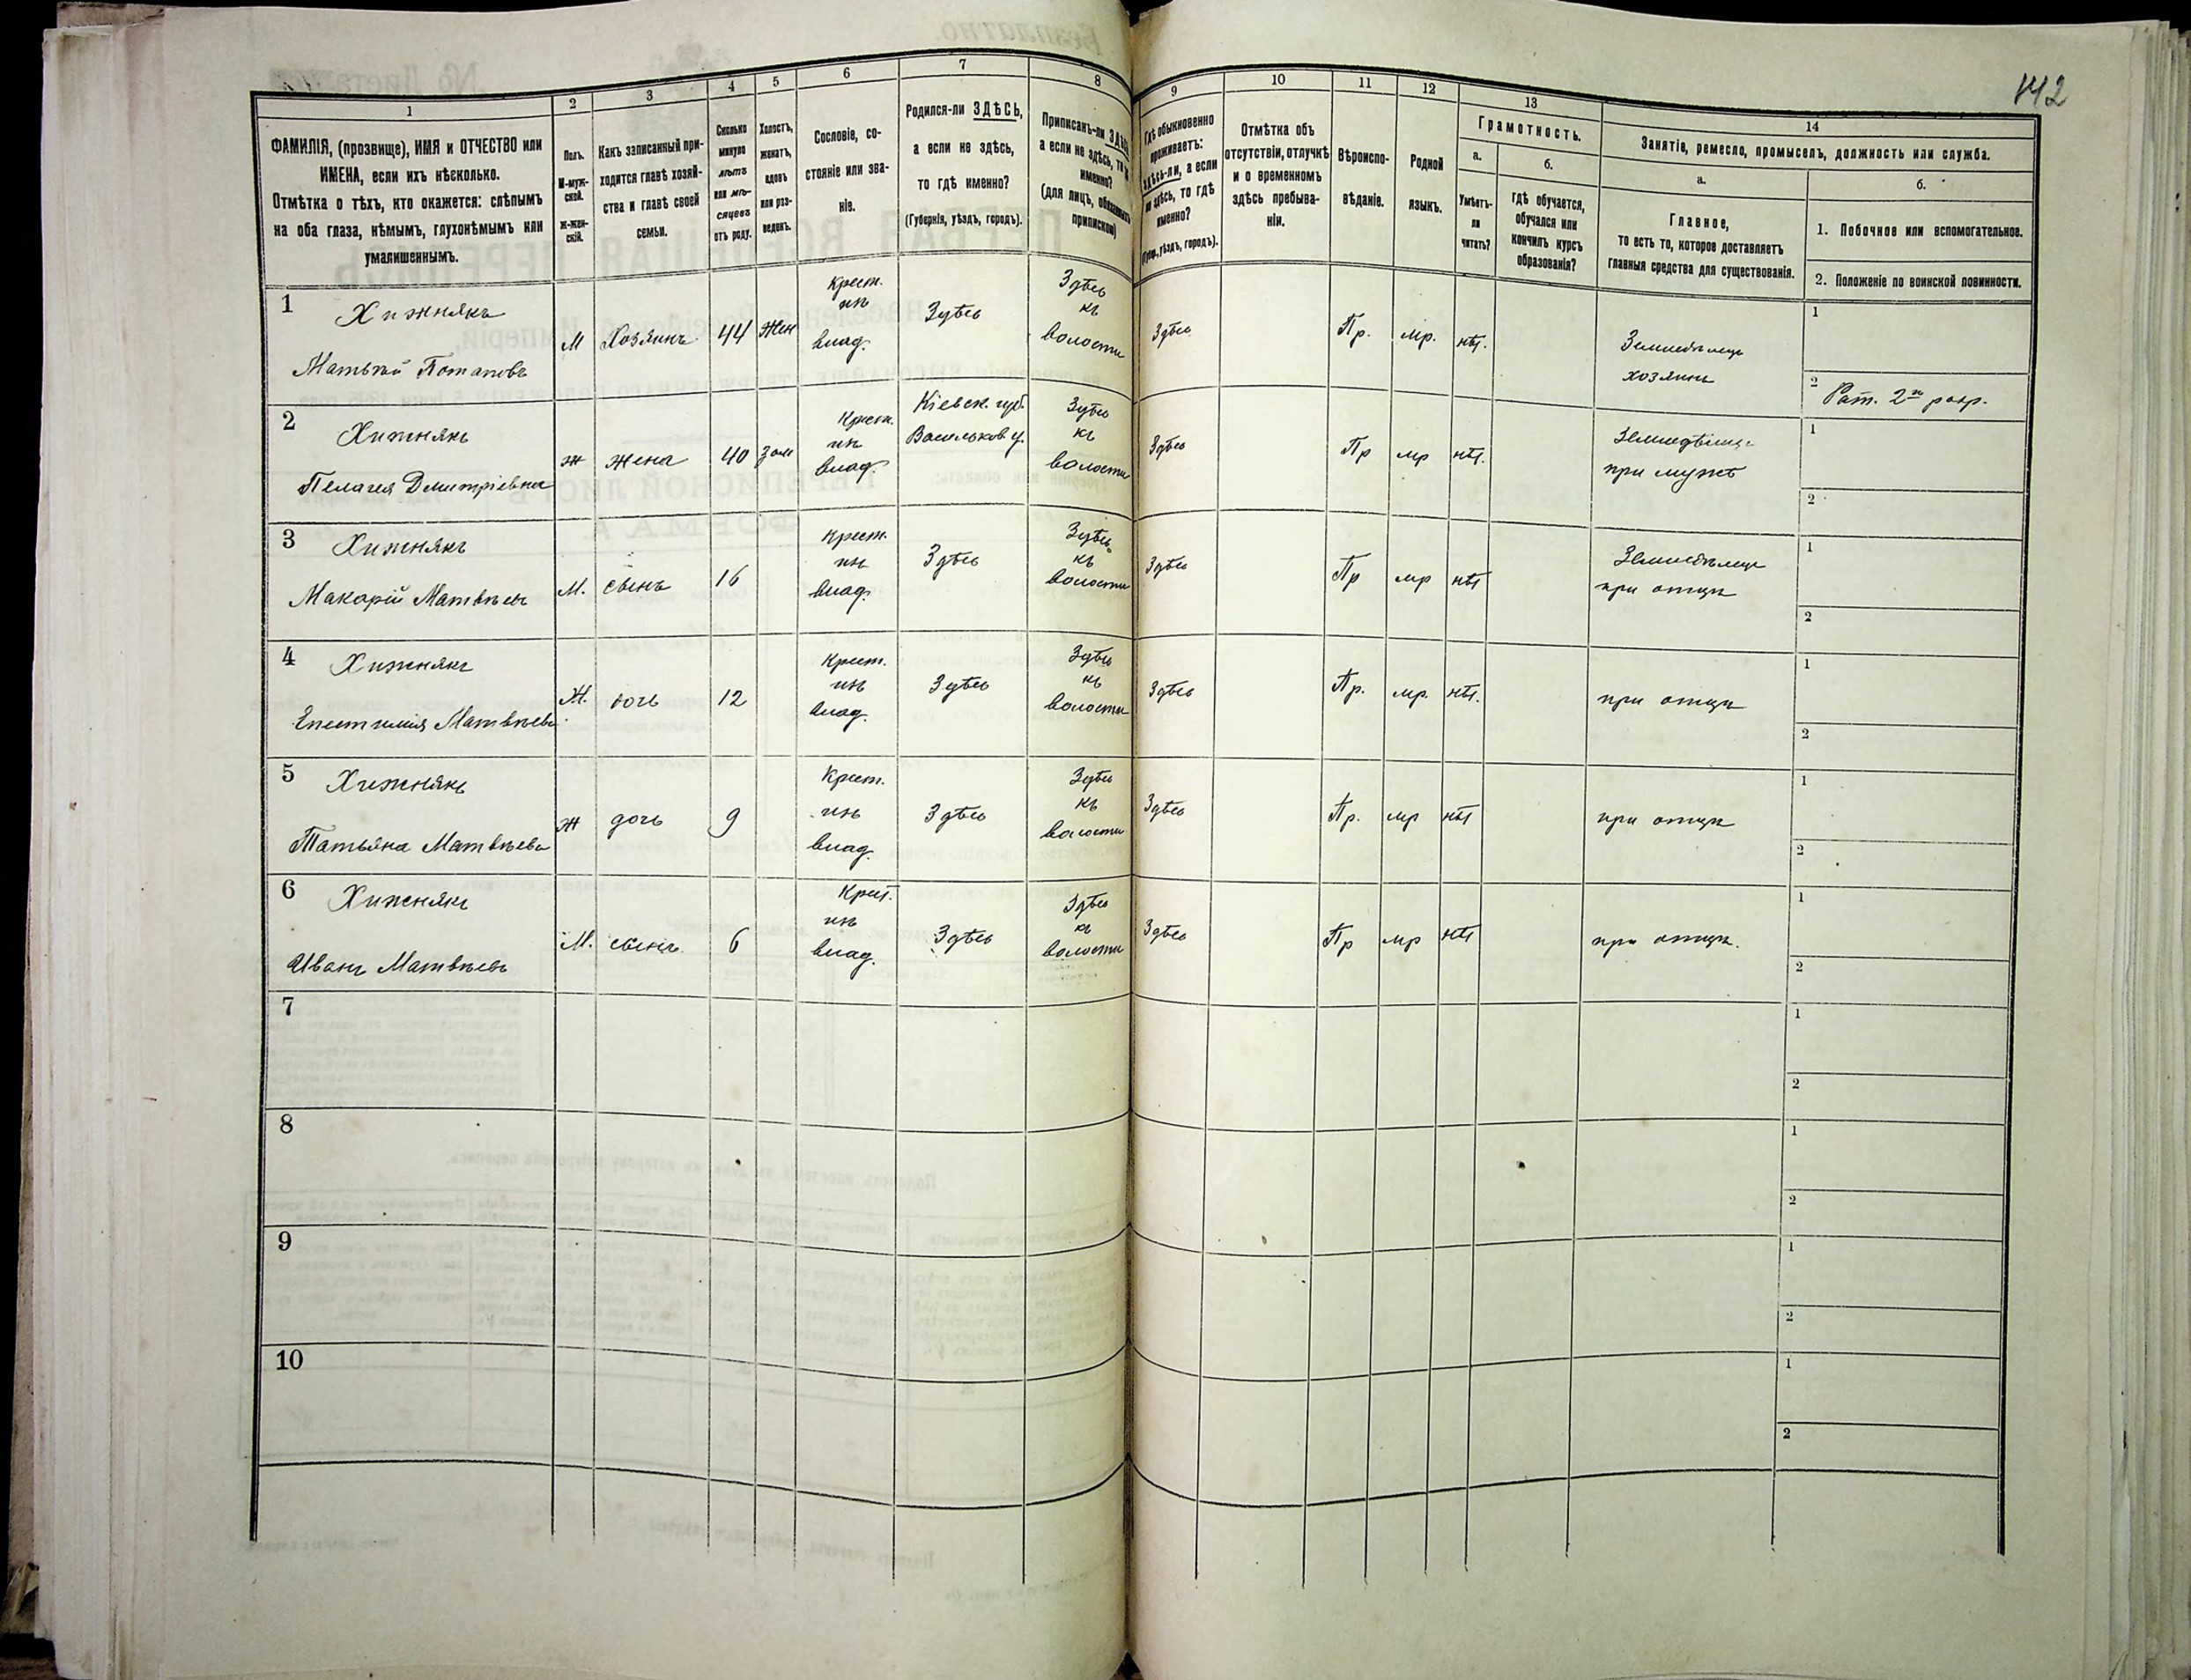 142
1
2
3
4
5
6
7
8
9
10
11
12
13
14
ФАМИЛІЯ, (прозвище), ИМЯ и ОТЧЕСТВО или
ИМЕНА, если ихъ нѣсколько.
Отмѣтка о тѣхъ, кто окажется: слѣпымъ
на оба глаза, нѣмымъ, глухонѣмымъ или
умалишеннымъ.
Полъ.
М-муж-
ской.
Ж-жен-
скій.
Какъ записанный при-
ходится главѣ хозяй-
ства и главѣ своей
семьи.
Сколько
минуло
лѣтъ
или мѣ-
сяцевъ
отъ роду.
Холостъ,
женатъ,
вдовъ
или раз-
веденъ.
Сословіе, со-
стояніе или зва-
ніе.
Родился-ли ЗДѢСЬ,
а если не здѣсь,
то гдѣ именно?
(Губернія, уѣздъ, городъ).
Приписанъ-ли ЗДѢСЬ,
а если не здѣсь, то гдѣ
именно?
(для лицъ, обязанныхъ
припискою)
Гдѣ обыкновенно
проживаетъ:
здѣсь-ли, а если
не здѣсь, то гдѣ
именно?
(Губер., уѣздъ, городъ).
Отмѣтка объ
отсутствіи, отлучкѣ
и о временномъ
здѣсь пребыва-
ніи.
Вѣроиспо-
вѣданіе.
Родной
языкъ.
Грамотность.
а.
б.
Умѣетъ-
ли
читать?
гдѣ обучается,
обучался или
кончилъ курсъ
образованія?
Занятіе, ремесло, промыселъ, должность или служба.
а.
б.
Главное,
то есть то, которое доставляетъ
главныя средства для существованія.
1. Побочное или вспомогательное.
2. Положеніе по воинской повинности.
1
Хижнякъ
Матвѣй Потаповъ
М
Хозяинъ
44
Жен
Крест.
изъ
влад.
Здѣсь
Здѣсь
къ
волости
Здѣсь
Пр.
мр.
нѣт.
Земледѣлецъ
хозяинъ
1
2
Рат. 2го разр.
2
Хижнякъ
Пелагея Дмитріевна
ж
жена
40
Зам
Крест.
изъ
влад.
Кіевск. губ.
Васильков у.
Здѣсь
къ
волости
Здѣсь
Пр
мр
нѣт.
при мужѣ
1
2
3
Хижнякъ
Макарій Матвѣевъ
М.
сынъ
16
Крест.
изъ
влад.
Здѣсь
Здѣсь
къ
волости
Здѣсь
Пр
мр
нѣт
Земледѣлецъ
при отцѣ
1
2
4
Хижнякъ
Епестимія Матвѣева
Ж.
дочь
12
Крест.
изъ
влад.
Здѣсь
Здѣсь
къ
волости
Здѣсь
Пр.
мр.
нѣт.
при отцѣ
1
2
5
Хижнякъ
Татьяна Матвѣева
Ж
дочь
9
Крест.
изъ
влад.
Здѣсь
Здѣсь
къ
волости
Здѣсь
Пр.
мр
нѣт
при отцѣ
1
2
6
Хижнякъ
Иванъ Матвѣевъ
М.
сынъ
6
Крест.
изъ
влад.
Здѣсь
Здѣсь
къ
волости
Здѣсь
Пр
мр
нѣт
при отцѣ.
1
2
7
1
2
8
1
2
9
1
2
10
1
2